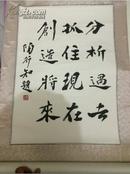 分析過去
抓住現在
創造將來
陶行知題